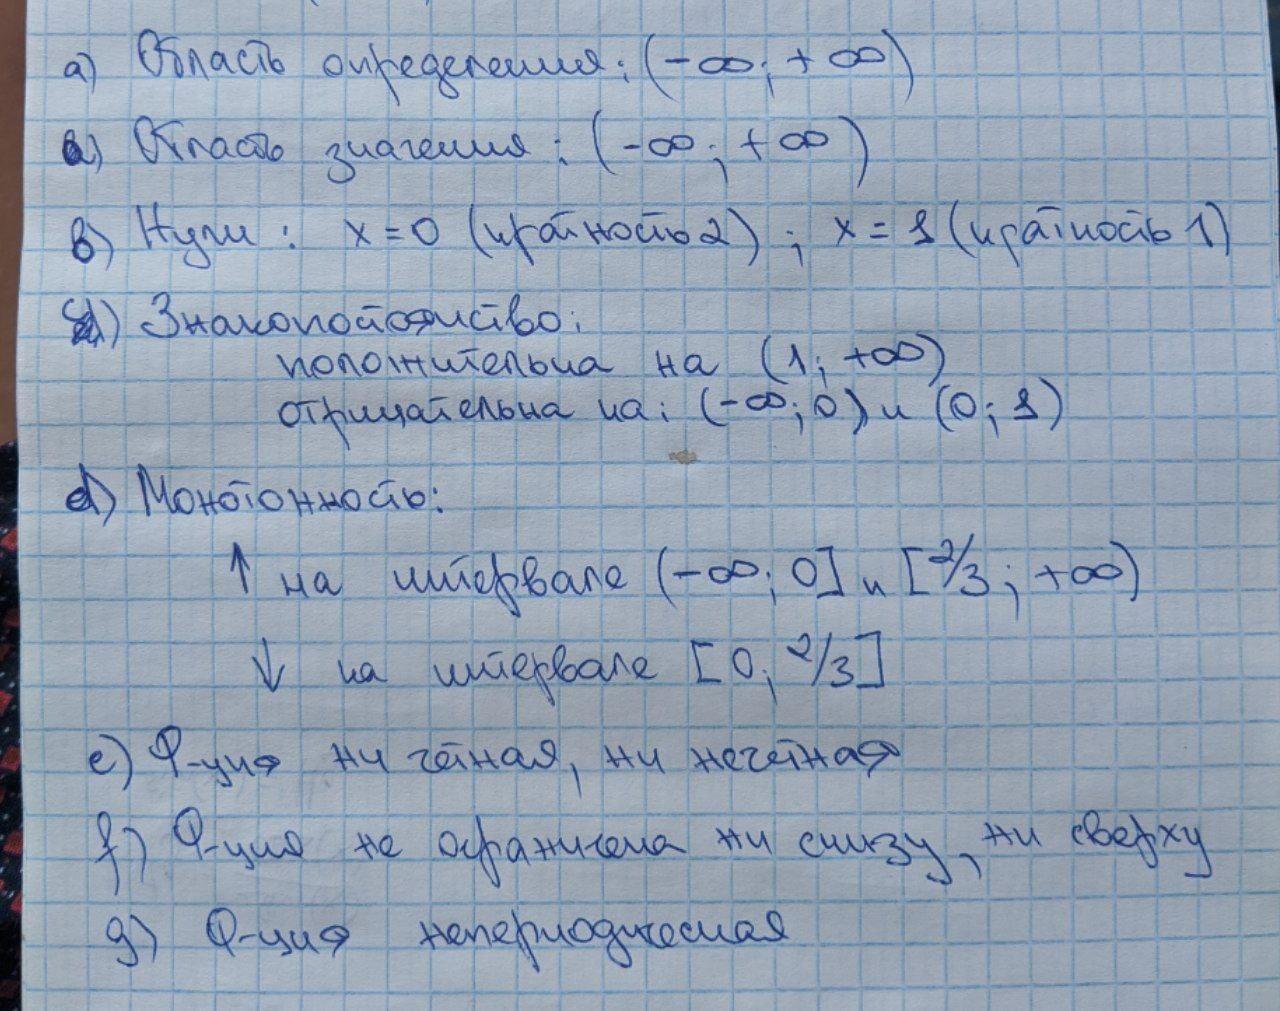 a) Область определения: (-∞; +∞)
b) Область значения: (-∞; +∞)
в) Нули: x = 0 (кратность 2); x = 1 (кратность 1)
d) Знакопостоянство:
положительна на (1; +∞)
отрицательна на: (-∞; 0) и (0; 1)
d) Монотонность:
↑ на интервале (-∞; 0] и [2/3; +∞)
↓ на интервале [0; 2/3]
e) Ф-ция ни чётная, ни нечётная
f) Ф-ция не ограничена ни снизу, ни сверху
g) Ф-ция непериодическая